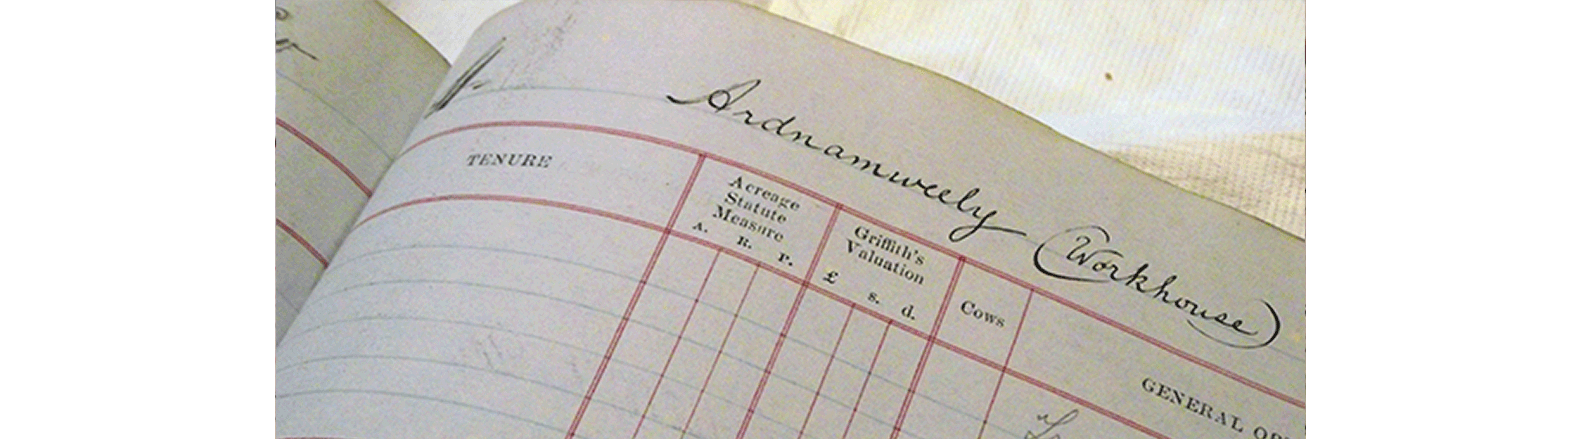 Ardnamweely (Workhouse)
TENURE
Acreage
Statute
Measure
A. R. P.
Griffith's
Valuation
£ s. d.
Cows
GENERAL